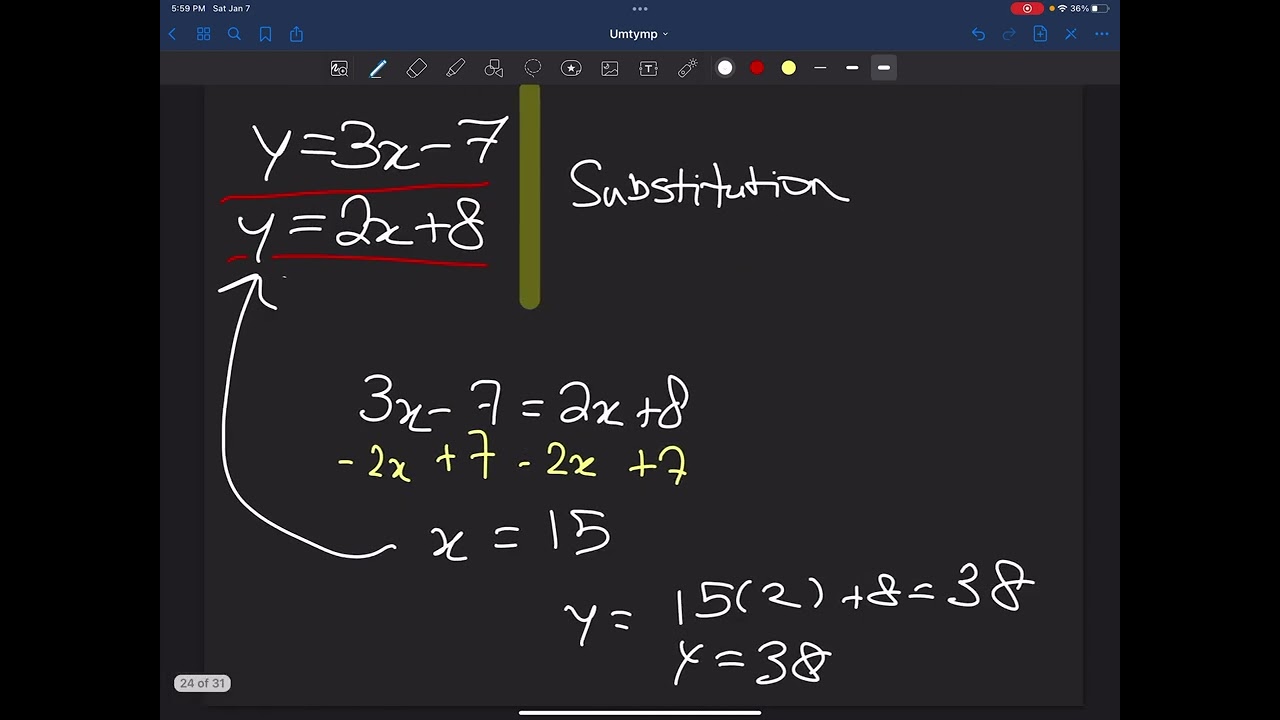 5:59 PM Sat Jan 7
36%
Umtymp
y=3x-7
Substitution
y=2x+8
3x-7=2x+8
-2x +7 -2x +7
x=15
y= 15(2)+8=38
y=38
24 of 31